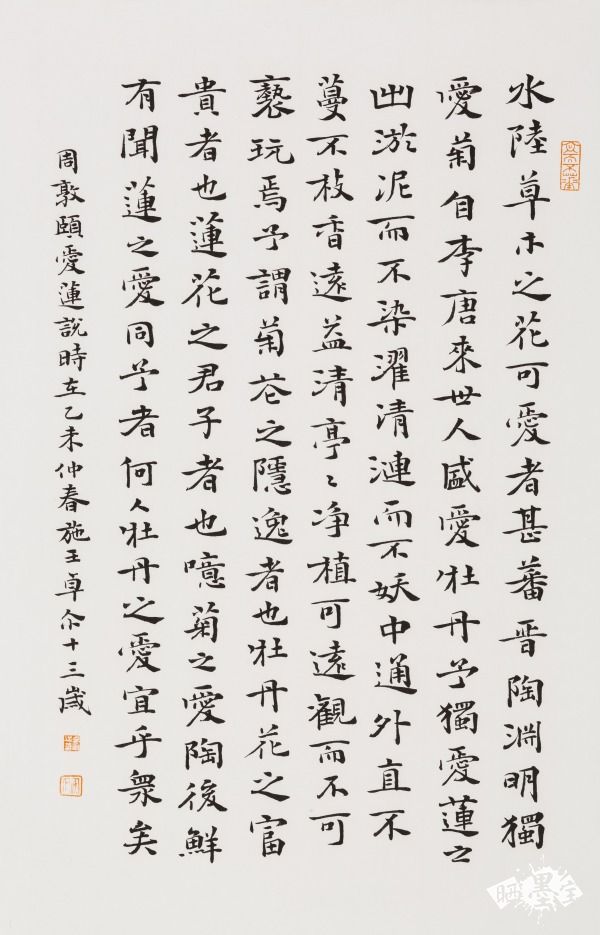 水陸草木之花可愛者甚蕃晋陶淵明獨
愛菊自李唐來世人盛愛牡丹予獨愛蓮之
出淤泥而不染濯清漣而不妖中通外直不
蔓不枝香遠益清亭〻净植可遠觀而不可
褻玩焉予謂菊花之隱逸者也牡丹花之富
貴者也蓮花之君子者也噫菊之愛陶後鮮
有聞蓮之愛同予者何人牡丹之愛宜乎衆矣
周敦頤愛蓮說時在乙未仲春施王卓尒十三歲
晒墨宝